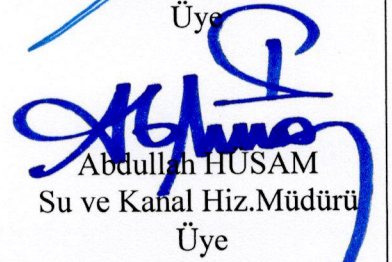 Üye
Abdullah HÜSAM
Su ve Kanal Hiz.Müdürü
Üye